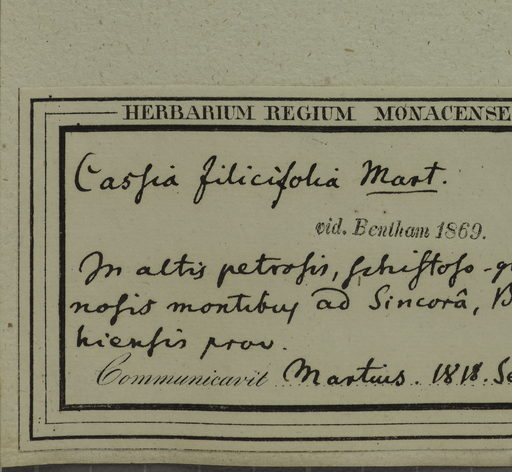 HERBARIUM REGIUM MONACENSE
Cassia filicifolia Mart.
vid. Bentham 1869.
In altis petrosis, schistoso-
nosis montibus ad Sincorâ, B
hiensis prov.
Communicavit Martius. 1818. Se